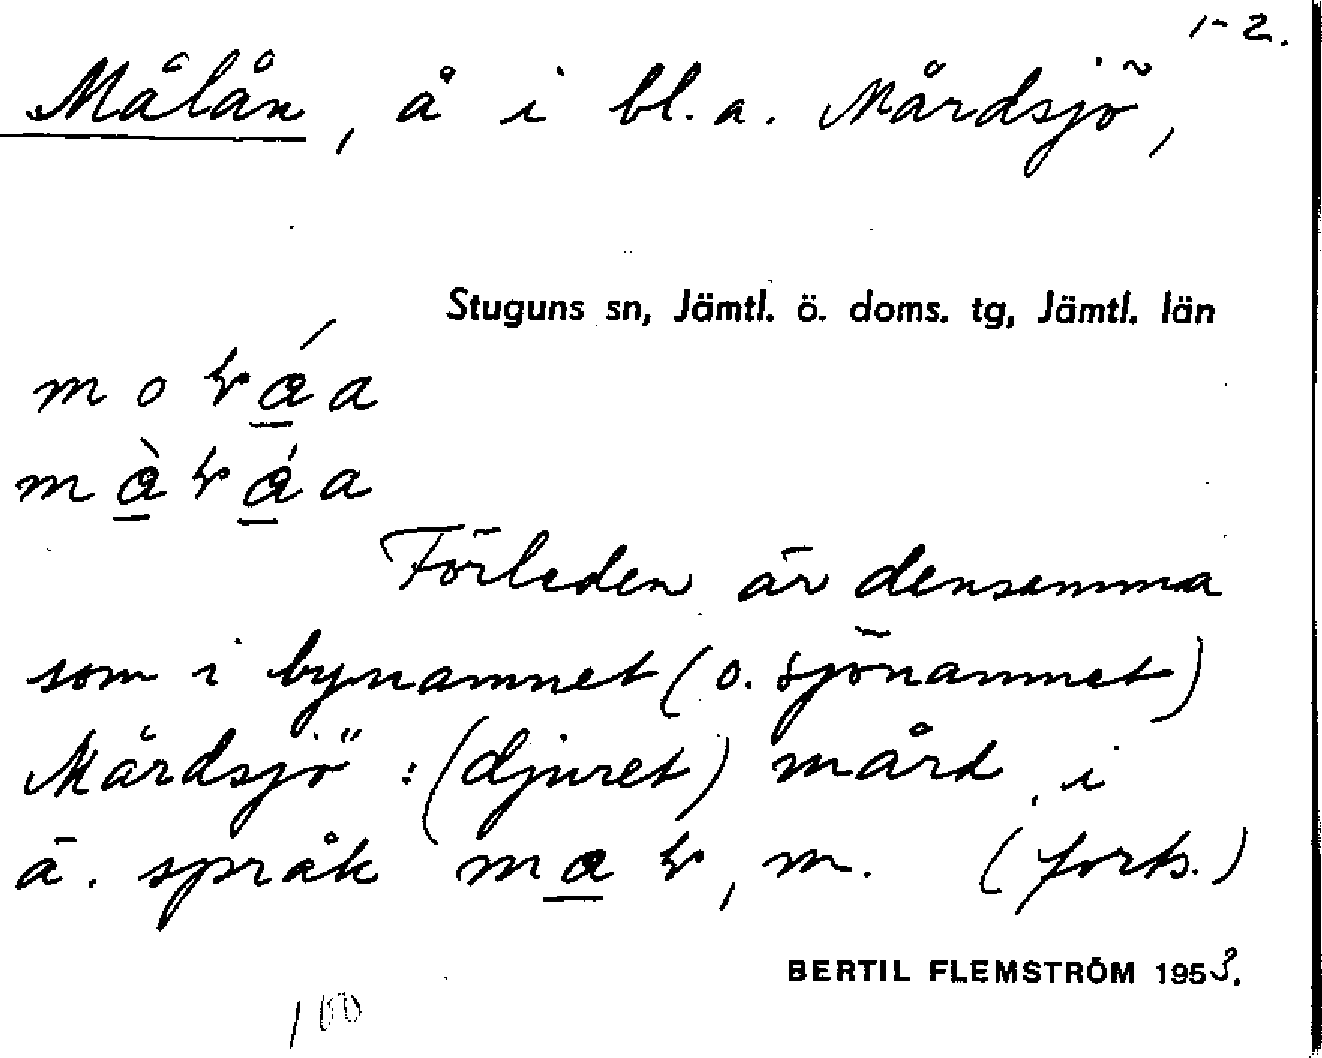 1-2.
Målån, å i bl.a. Mårdsjö,
Stuguns sn, Jämtl. ö. doms. tg, Jämtl. län
Förleden är densamma
som i bynamnet (o. sjönamnet)
Mårdsjö : (djuret) mård, i
ä. språk m. (forts.)
BERTIL FLEMSTRÖM 1953.
100